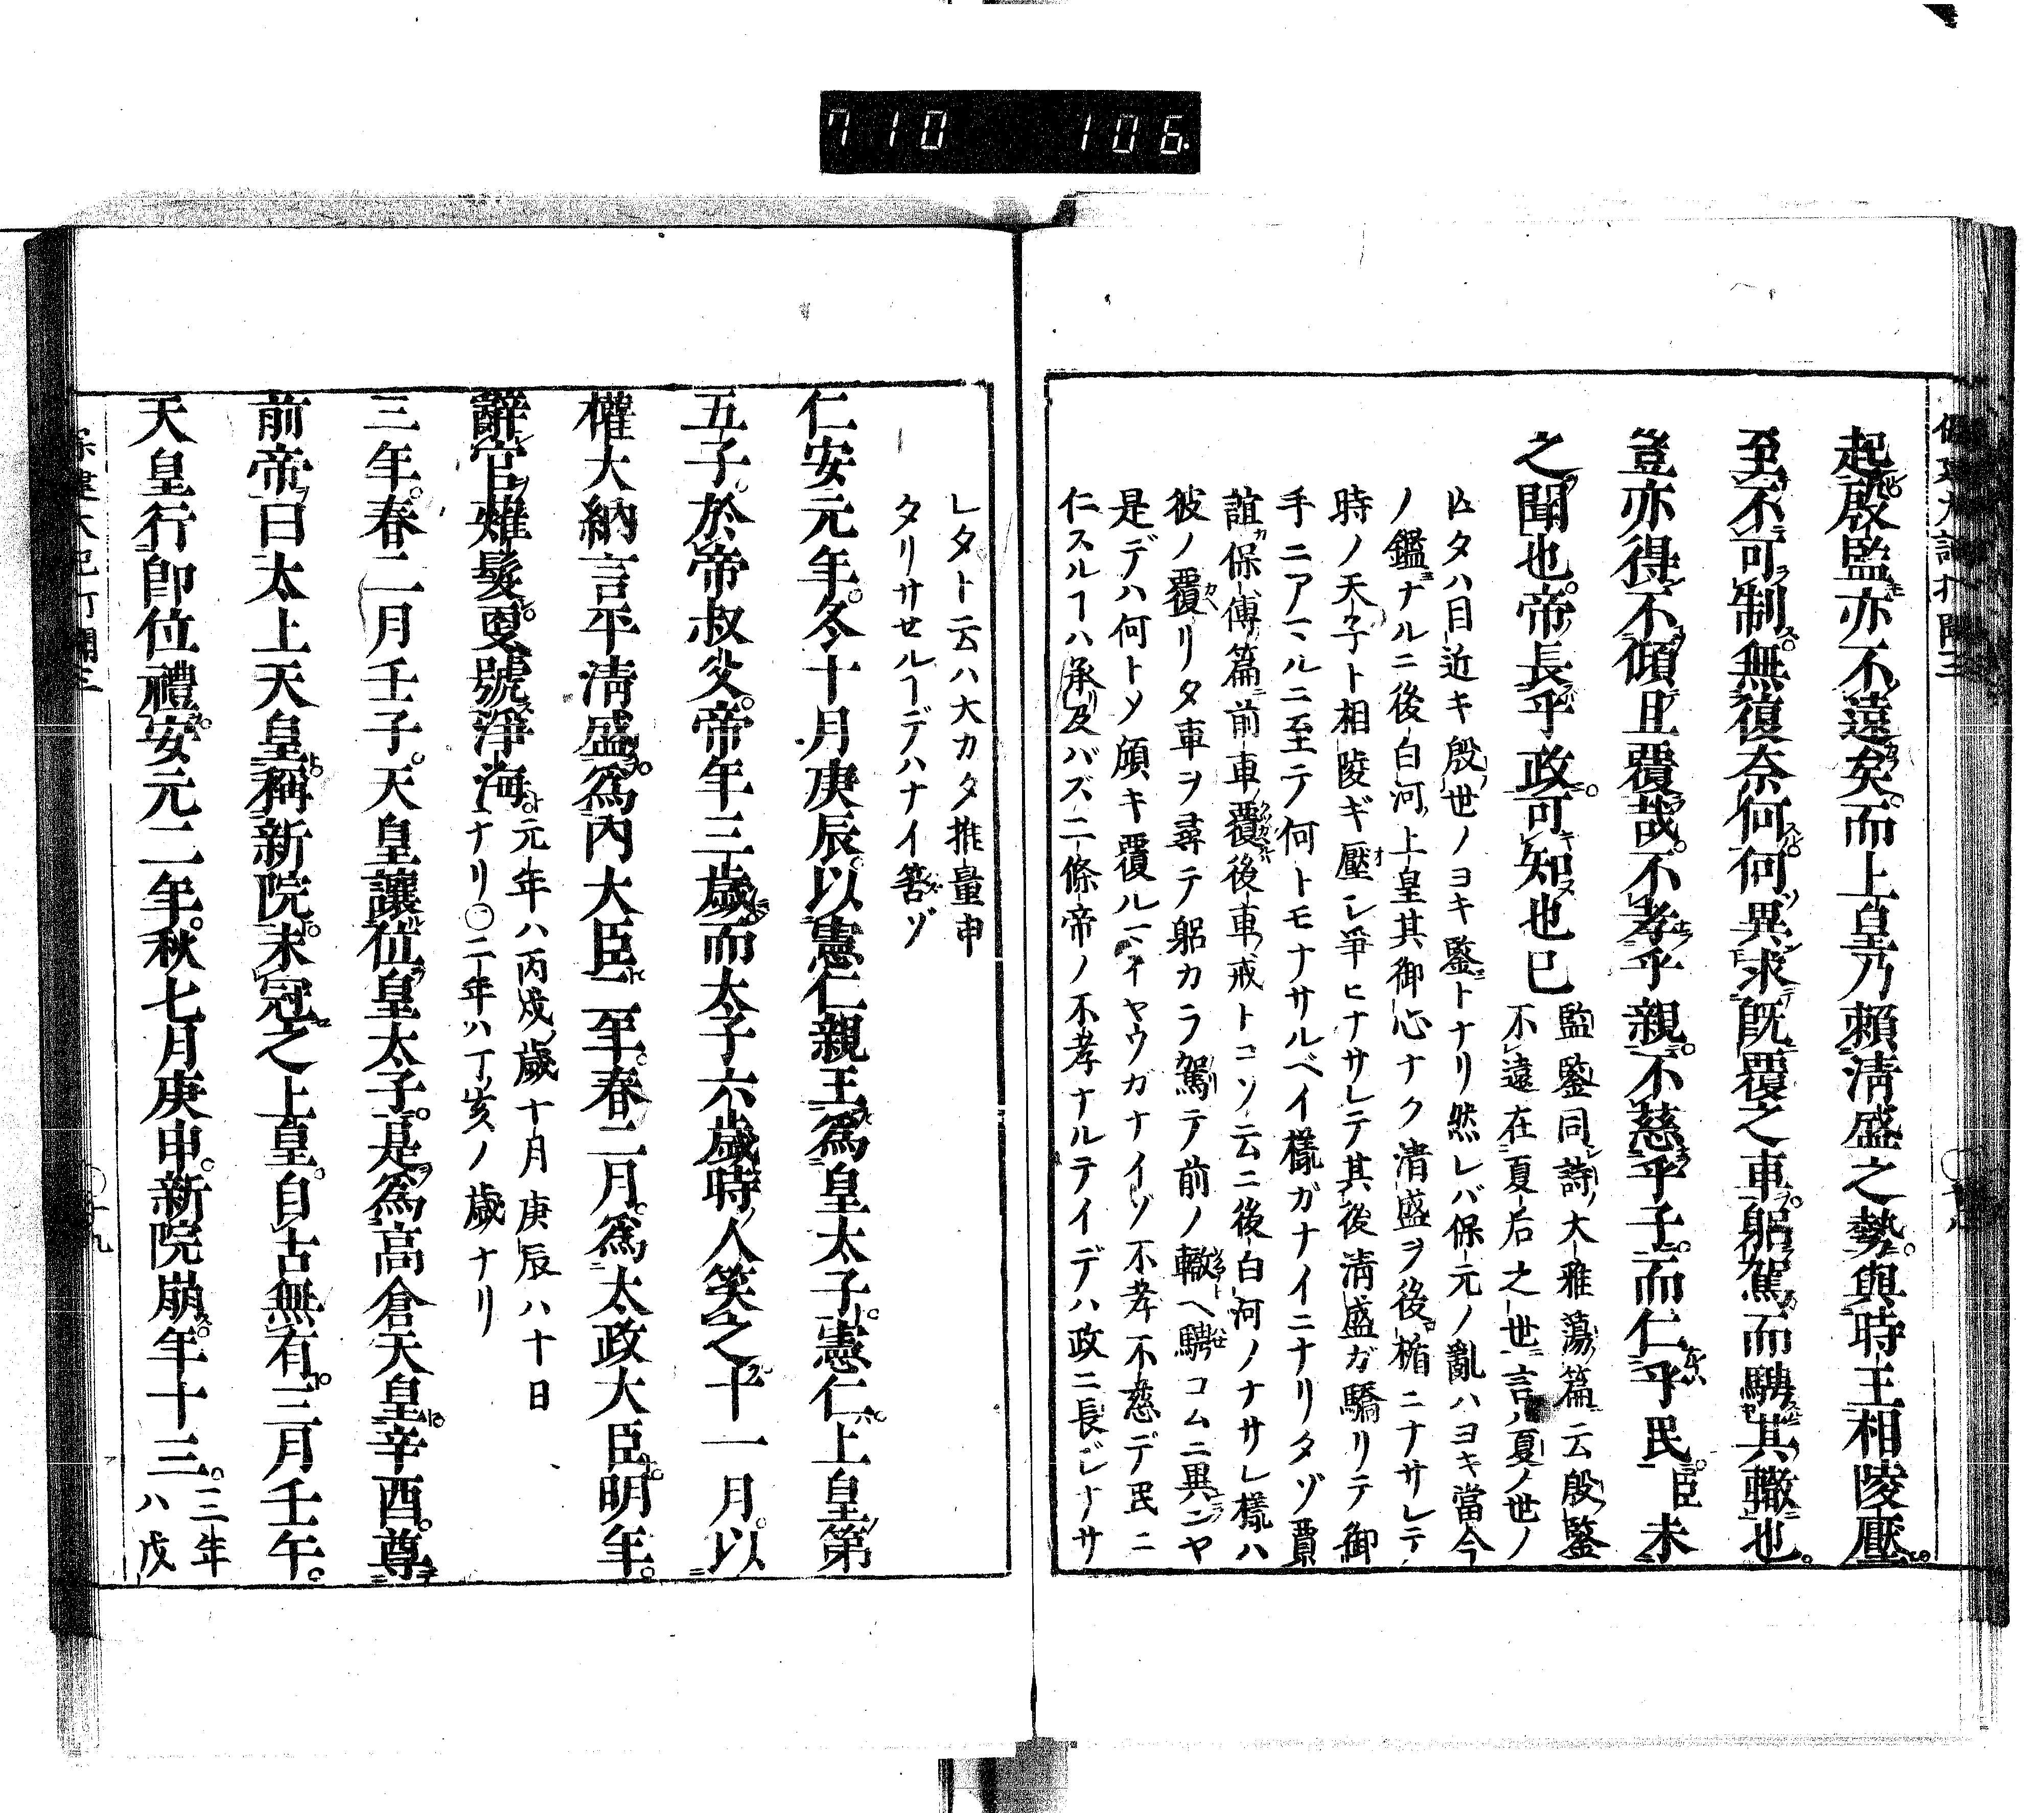 710 106.
起。殷監亦不遠矣。而上皇乃頼清盛之勢。與時王相陵壓。
至不可制。無復奈何。何異求既覆之車。躬駕而騁其轍也。
豈亦得不傾且覆哉。不孝乎親。不慈乎子。而仁乎民。臣未
之聞也。帝長乎政。可知也已
監鑒同詩ノ大雅蕩ノ篇ニ云殷鑒
不遠在夏后之世言ハ夏ノ世ノ
亡タハ目近キ殷世ノヨキ鑒トナリ然レバ保元ノ亂ハヨキ當今
ノ鑑ナルニ後白河上皇其御心ナク清盛ヲ後楯ニナサレテ
時ノ天子ト相陵ギ壓シ爭ヒナサレテ其後淸盛ガ驕リテ御
手ニアマルニ至テ何トモナサルベイ樣ガナイニナリタゾ賈
誼保傅篇ニ前車覆後車戒トコソ云ニ後白河ノナサレ樣ハ
彼ノ覆リタ車ヲ尋テ躬カラ駕テ前ノ轍ヘ騁コムニ異ニヤ
是デハ何トメ傾キ覆ルマイヤウガナイゾ不孝不慈デ民ニ
仁スルヿハ承リ及バズ二條帝ノ不孝ナルテイデハ政ニ長ジナサ
レタト云ハ大カタ推量申
タリサセルヿデハナイ筈ゾ
仁安元年。冬十月庚辰。以憲仁親王爲皇太子。憲仁。上皇第
五子。於帝叔父。帝年三歲。而太子六歲。時人笑之。十一月。以
權大納言平清盛爲內大臣。二年。春二月。爲太政大臣。明年。
辭官薙髮。更號淨海。
元年ハ丙戌ノ歲十月庚辰ハ十日
ナリ〇二年ハ丁亥ノ歲ナリ
三年。春二月壬子。天皇讓位皇太子。是爲高倉天皇。辛酉。尊
前帝曰太上天皇。稱新院。未冠之上皇。自古無有。三月壬午。
天皇行卽位禮。安元二年。秋七月庚申。新院崩。年十三。
三年
ハ戊